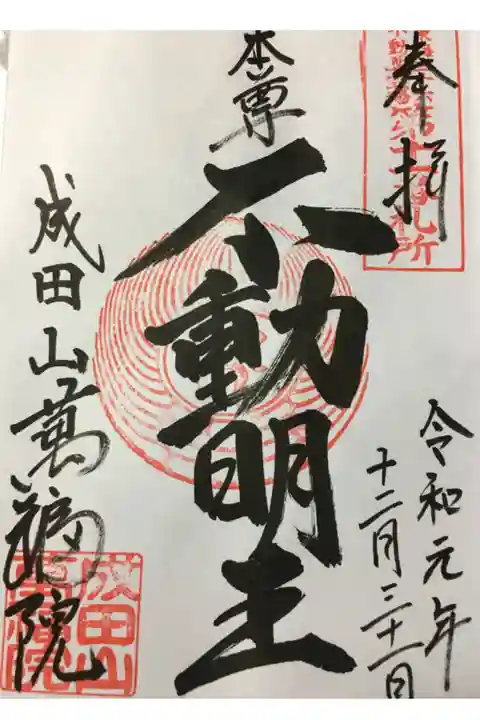 奉拝
本尊
不動明王
令和元年
十二月三十一日
成田山萬福院
成田山
萬福院